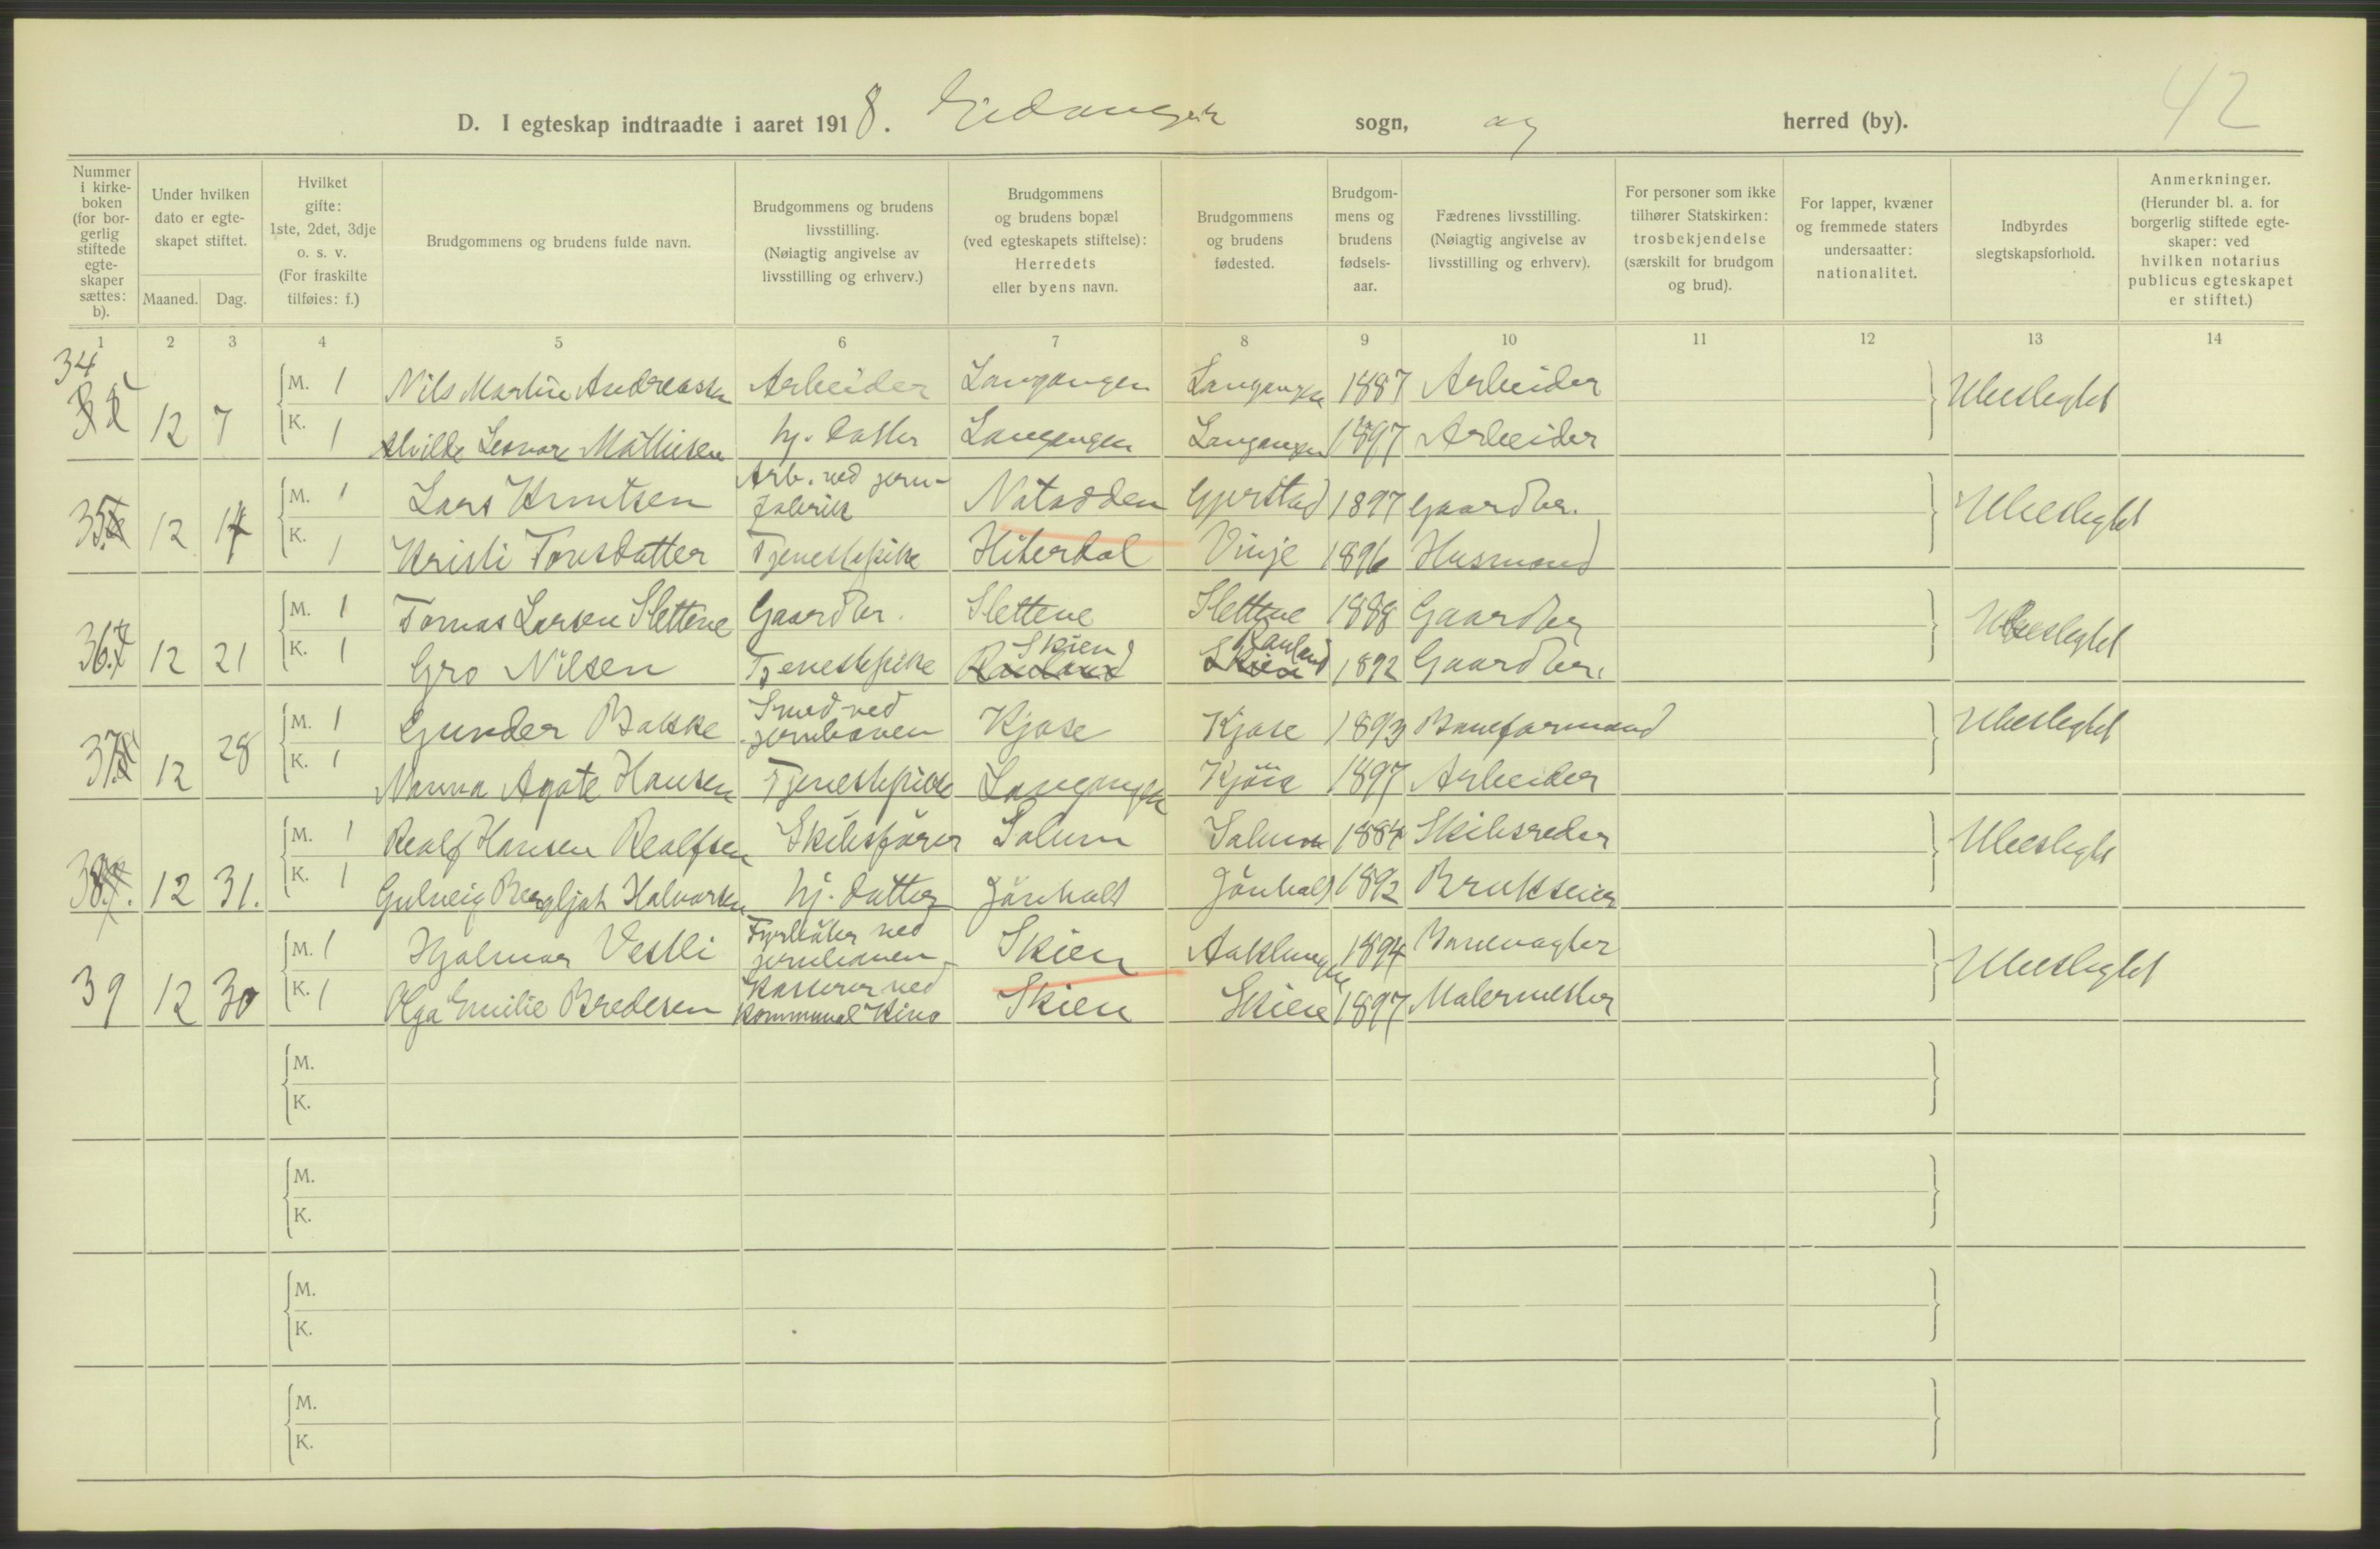 42
D. I egteskap indtraadte i aaret 1918. Eidanger sogn, og herred (by).
Nummer i kirkeboken (for borgerlig stiftede egteskaper sættes: b).
Under hvilken dato er egteskapet stiftet.
Maaned. Dag.
Hvilket gifte: 1ste, 2det, 3dje o. s. v. (For fraskilte tilføies: f.)
Brudgommens og brudens fulde navn.
Brudgommens og brudens livsstilling. (Nøiagtig angivelse av livsstilling og erhverv.)
Brudgommens og brudens bopæl (ved egteskapets stiftelse): Herredets eller byens navn.
Brudgommens og brudens fødested.
Brudgommens og brudens fødselsaar.
Fædrenes livsstilling. (Nøiagtig angivelse av livsstilling og erhverv).
For personer som ikke tilhører Statskirken: trosbekjendelse (særskilt for brudgom og brud).
For lapper, kvæner og fremmede staters undersaatter: nationalitet.
Indbyrdes slegtskapsforhold.
Anmerkninger. (Herunder bl. a. for borgerlig stiftede egteskaper: ved hvilken notarius publicus egteskapet er stiftet.)
1 2 3 4 5 6 7 8 9 10 11 12 13 14
34 12 7 M. 1 Nils Martin Andreassen Arbeider Langangen Langangen 1887 Arbeider Ubeslegtet
K. 1 Alvilde Leonore Mathisen hj. datter Langangen Langangen 1897 Arbeider
35 12 14 M. 1 Lars Knutsen Arb. ved jern-
fabrik Notodden Gjerstad 1897 Gaardbr. Ubeslegtet
K. 1 Kristi Tovsdatter Tjenestepike Hiterdal Vinje 1896 Husmand
36. 12 21 M. 1 Tomas Larsen Slettene Gaardbr. Slettene Slettene 1888 Gaardbr Ubeslegtet
K. 1 Gro Nilsen Tjenestepike Skien Rauland Rauland Skien 1892 Gaardbr.
37 12 28 M. 1 Gunder Bakke Smed ved
jernbanen Kjose Kjose 1893 Baneformand Ubeslegtet
K. 1 Nanna Agate Hansen Tjenestepike Langangen 1897 Arbeider
38. 12 31. M. 1 Realf Hansen Realfsen Skibsfører Solum Solum 1884 Skibsreder Ubeslegtet
K. 1 Gulveig Bergljot Halvorsen hj. datter Jönholt Jönholt 1892 Brukseier
39 12 30 M. 1 Hjalmar Vestli Fyrbøter ved
jernbanen Skien Aaklungen 1894 Banevagter Ubeslegtet
K. 1 Olga Emilie Bredesen Kasserer ved
kommunal Kino Skien Skien 1897 Malermester
M.
K.
M.
K.
M.
K.
M.
K.